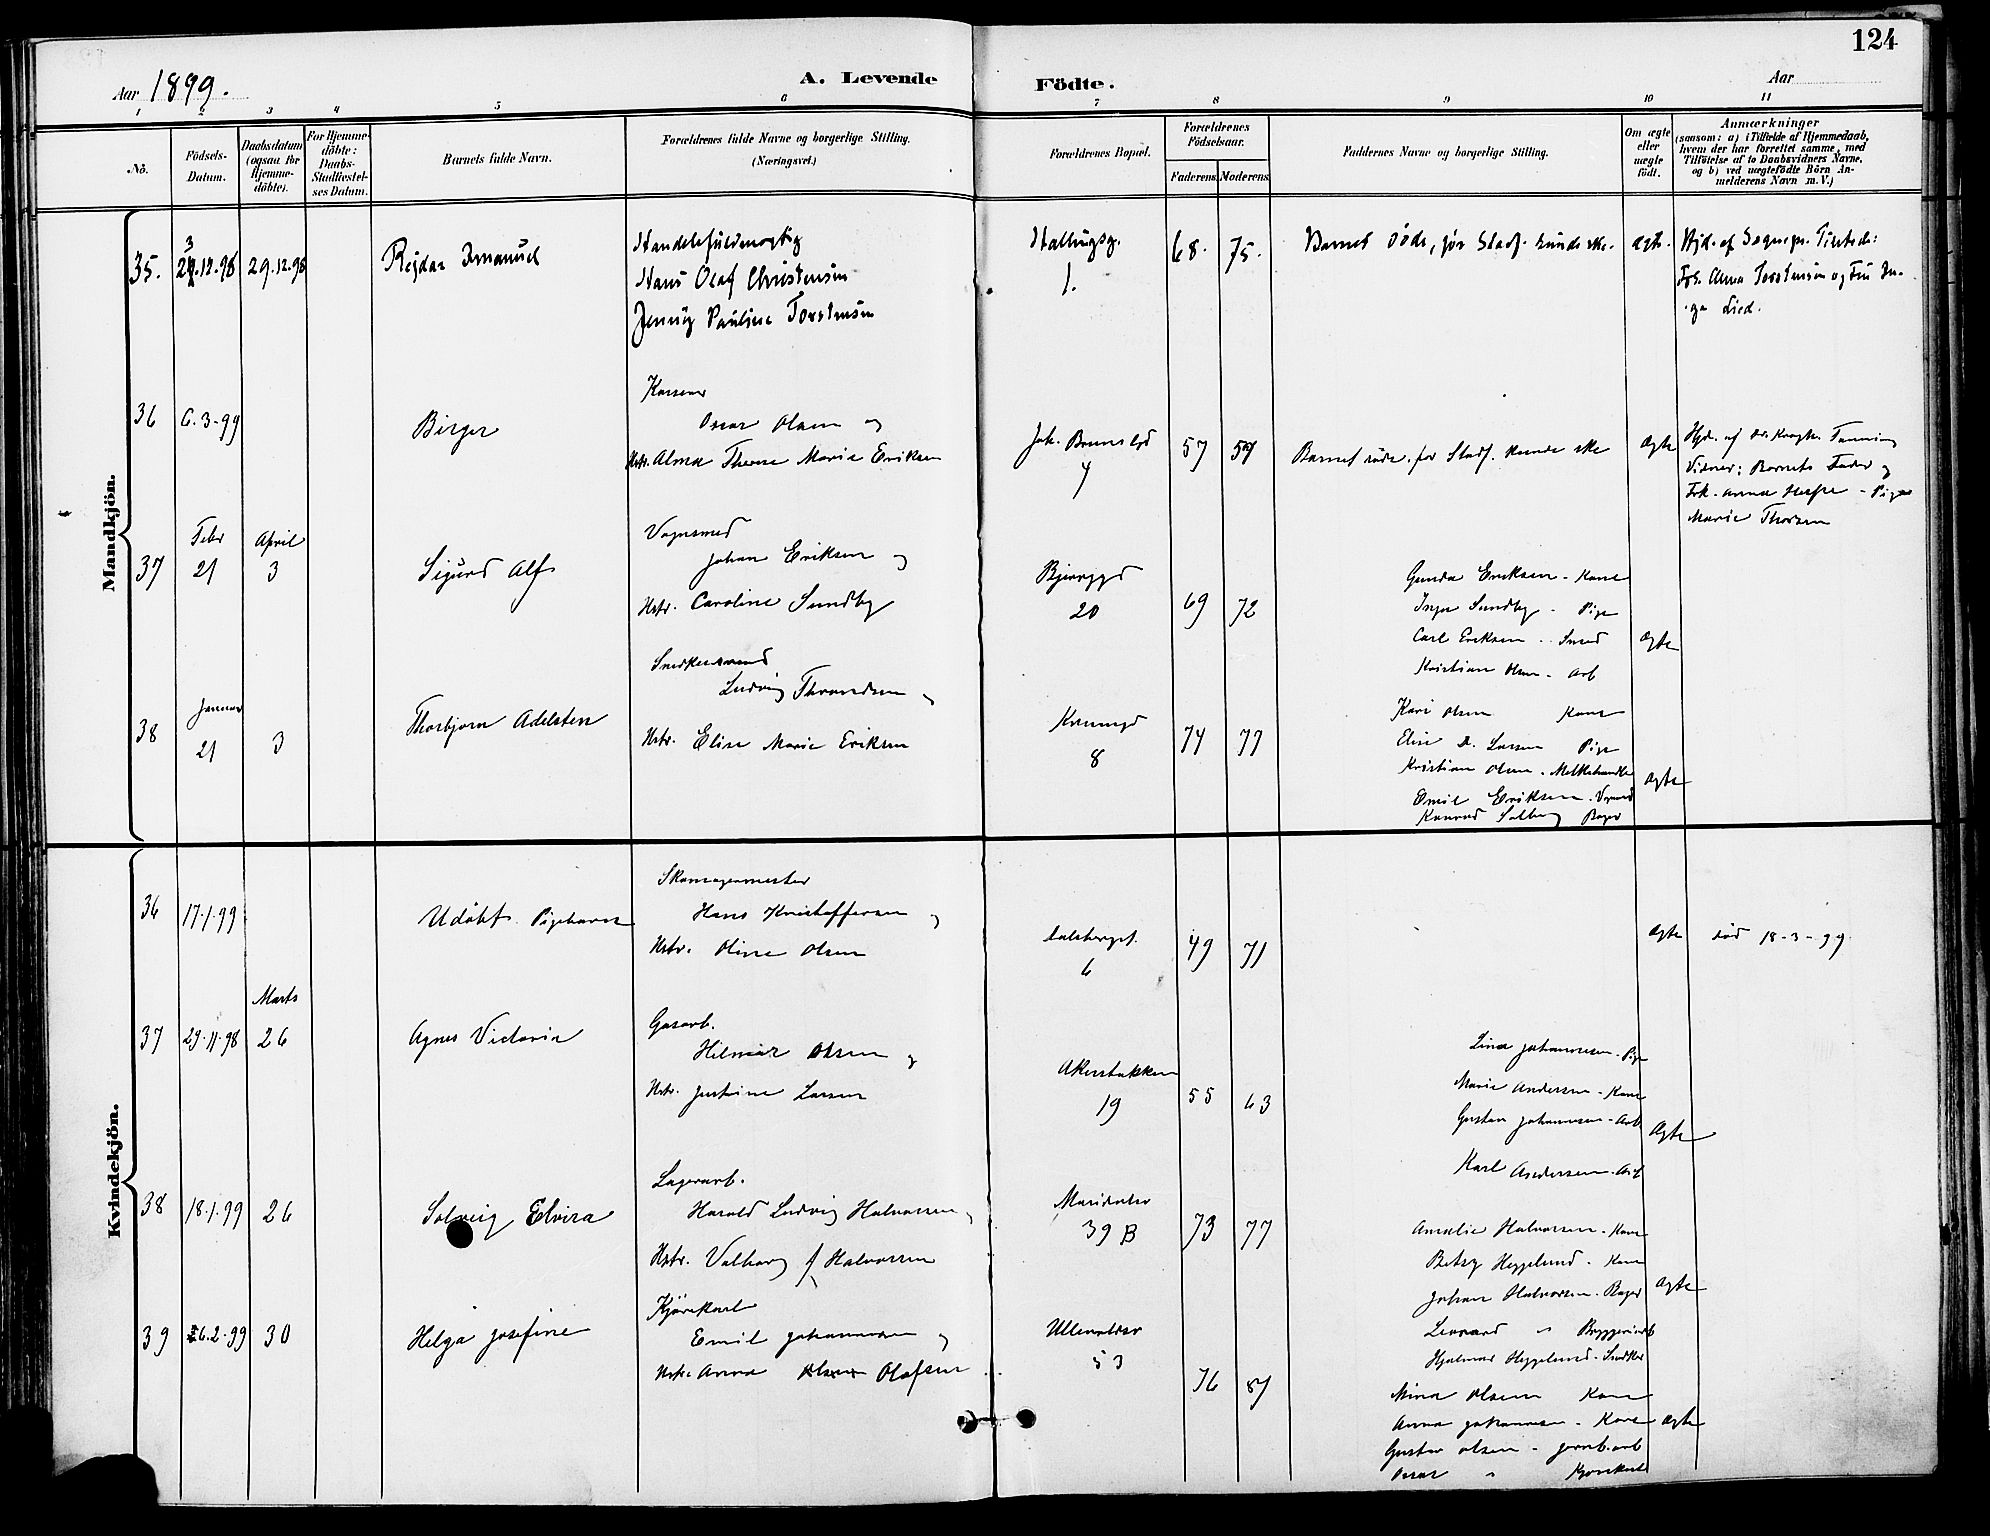 124
Aar 1899.
A. Levende Födte.
Aar
1 2 3 4 5 6 7 8 9 10 11
No.
Födsels-Datum.
Daabsdatum (ogsaa for Hjemme-döbte).
For Hjemme-döbte: Daabs-Stadfæstel-ses Datum.
Barnets fulde Navn.
Forældrenes fulde Navne og borgerlige Stilling. (Næringsvei.)
Forældrenes Bopæl.
Forældrenes Födselsaar.
Faderens. Moderens.
Faddernes Navne og borgerlige Stilling.
Om ægte eller uægte födt.
Anmærkninger
(saasom: a) i Tilfælde af Hjemmedaab, hvem der har forrettet samme, med Tilföielse af to Daabsvidners Navne, og b) ved uægtefödte Börn An-melderens Navn m. V.)
Mandkjön.
35. 12.98 29.12.98 Rejdar Imanuel
Handelsfuldmægtig
Hans Olaf Christensen
Jenny Pauline Torstensen
1. 68. 75.
Barnet döde, før Stadf. kunde ske. ægte.
Hjd. af Sognepr.
Frk. Anna Torstensen og
36 6.3-99 Birger
Oscar Olsen og
Hstr. Alma Therese Marie Eriksen
7 57 59
Barnet døde før Stadf. kunde ske Ægte
Vidner: Barnets Fader og
Frk. Anna - Pige
Marie Thorsen
37 Febr 21 April 3 Sigurd Alf
Vognsmed
Johan Eriksen og
Hstr. Caroline Sundby
Bjerregd 20 69 72
Gunda Eriksen - Kone
Inga Sundby - Pige
Carl Eriksen - Smed
Kristian Olsen - Arb
Ægte
38 Januar 21 3 Thorbjørn Adelsten
Snedkersvend
Ludvig Throndsen
Hstr. Elise Marie Eriksen
8 74 77
Kari Olsen Kone
Elise A. Larsen Pige
Kristian Olsen - Melkehandler
Emil Eriksen -
Konrad Solberg Bager
Ægte
Kvindekjön.
36 17.1.99 Udöbt Pigebarn
Skomagermester
Hans Kristoffersen og
Hstr. Oline Olsen
6 49 71
Ægte død 18-3-99
37 29.11.98 Marts 26 Agnes Victoria
Gasarb.
Hilmar Olsen og
Hstr. Justine Larsen
Akersbakken 19 55 63
Lina Johannesen - Pige
Marie Andersen - Kone
Gustav Johannesen - Arb
Karl Andersen - Arb
Ægte
38 18.1.99 26 Solveig Elvira
Lagerarb.
Harald Ludvig Halvorsen
Hstr. Valborg f Halvorsen
39 B 73 77
Amalie Halvorsen - Kone
Betsy Heggelund - Kone
Johan Halvorsen - Bager
Leonard " Bryggeriarb
Hjalmar Heggelund - Snedker
Ægte
39 26.2.99 30 Helga Josefine
Kjørekarl
Emil Johannesen og
Hstr. Anna Olafsen
53 76
Mina Olsen Kone
Anna Johannesen - Kone
Gustav Olsen - Jernb.arb
Oscar " Kjørekarl
Ægte